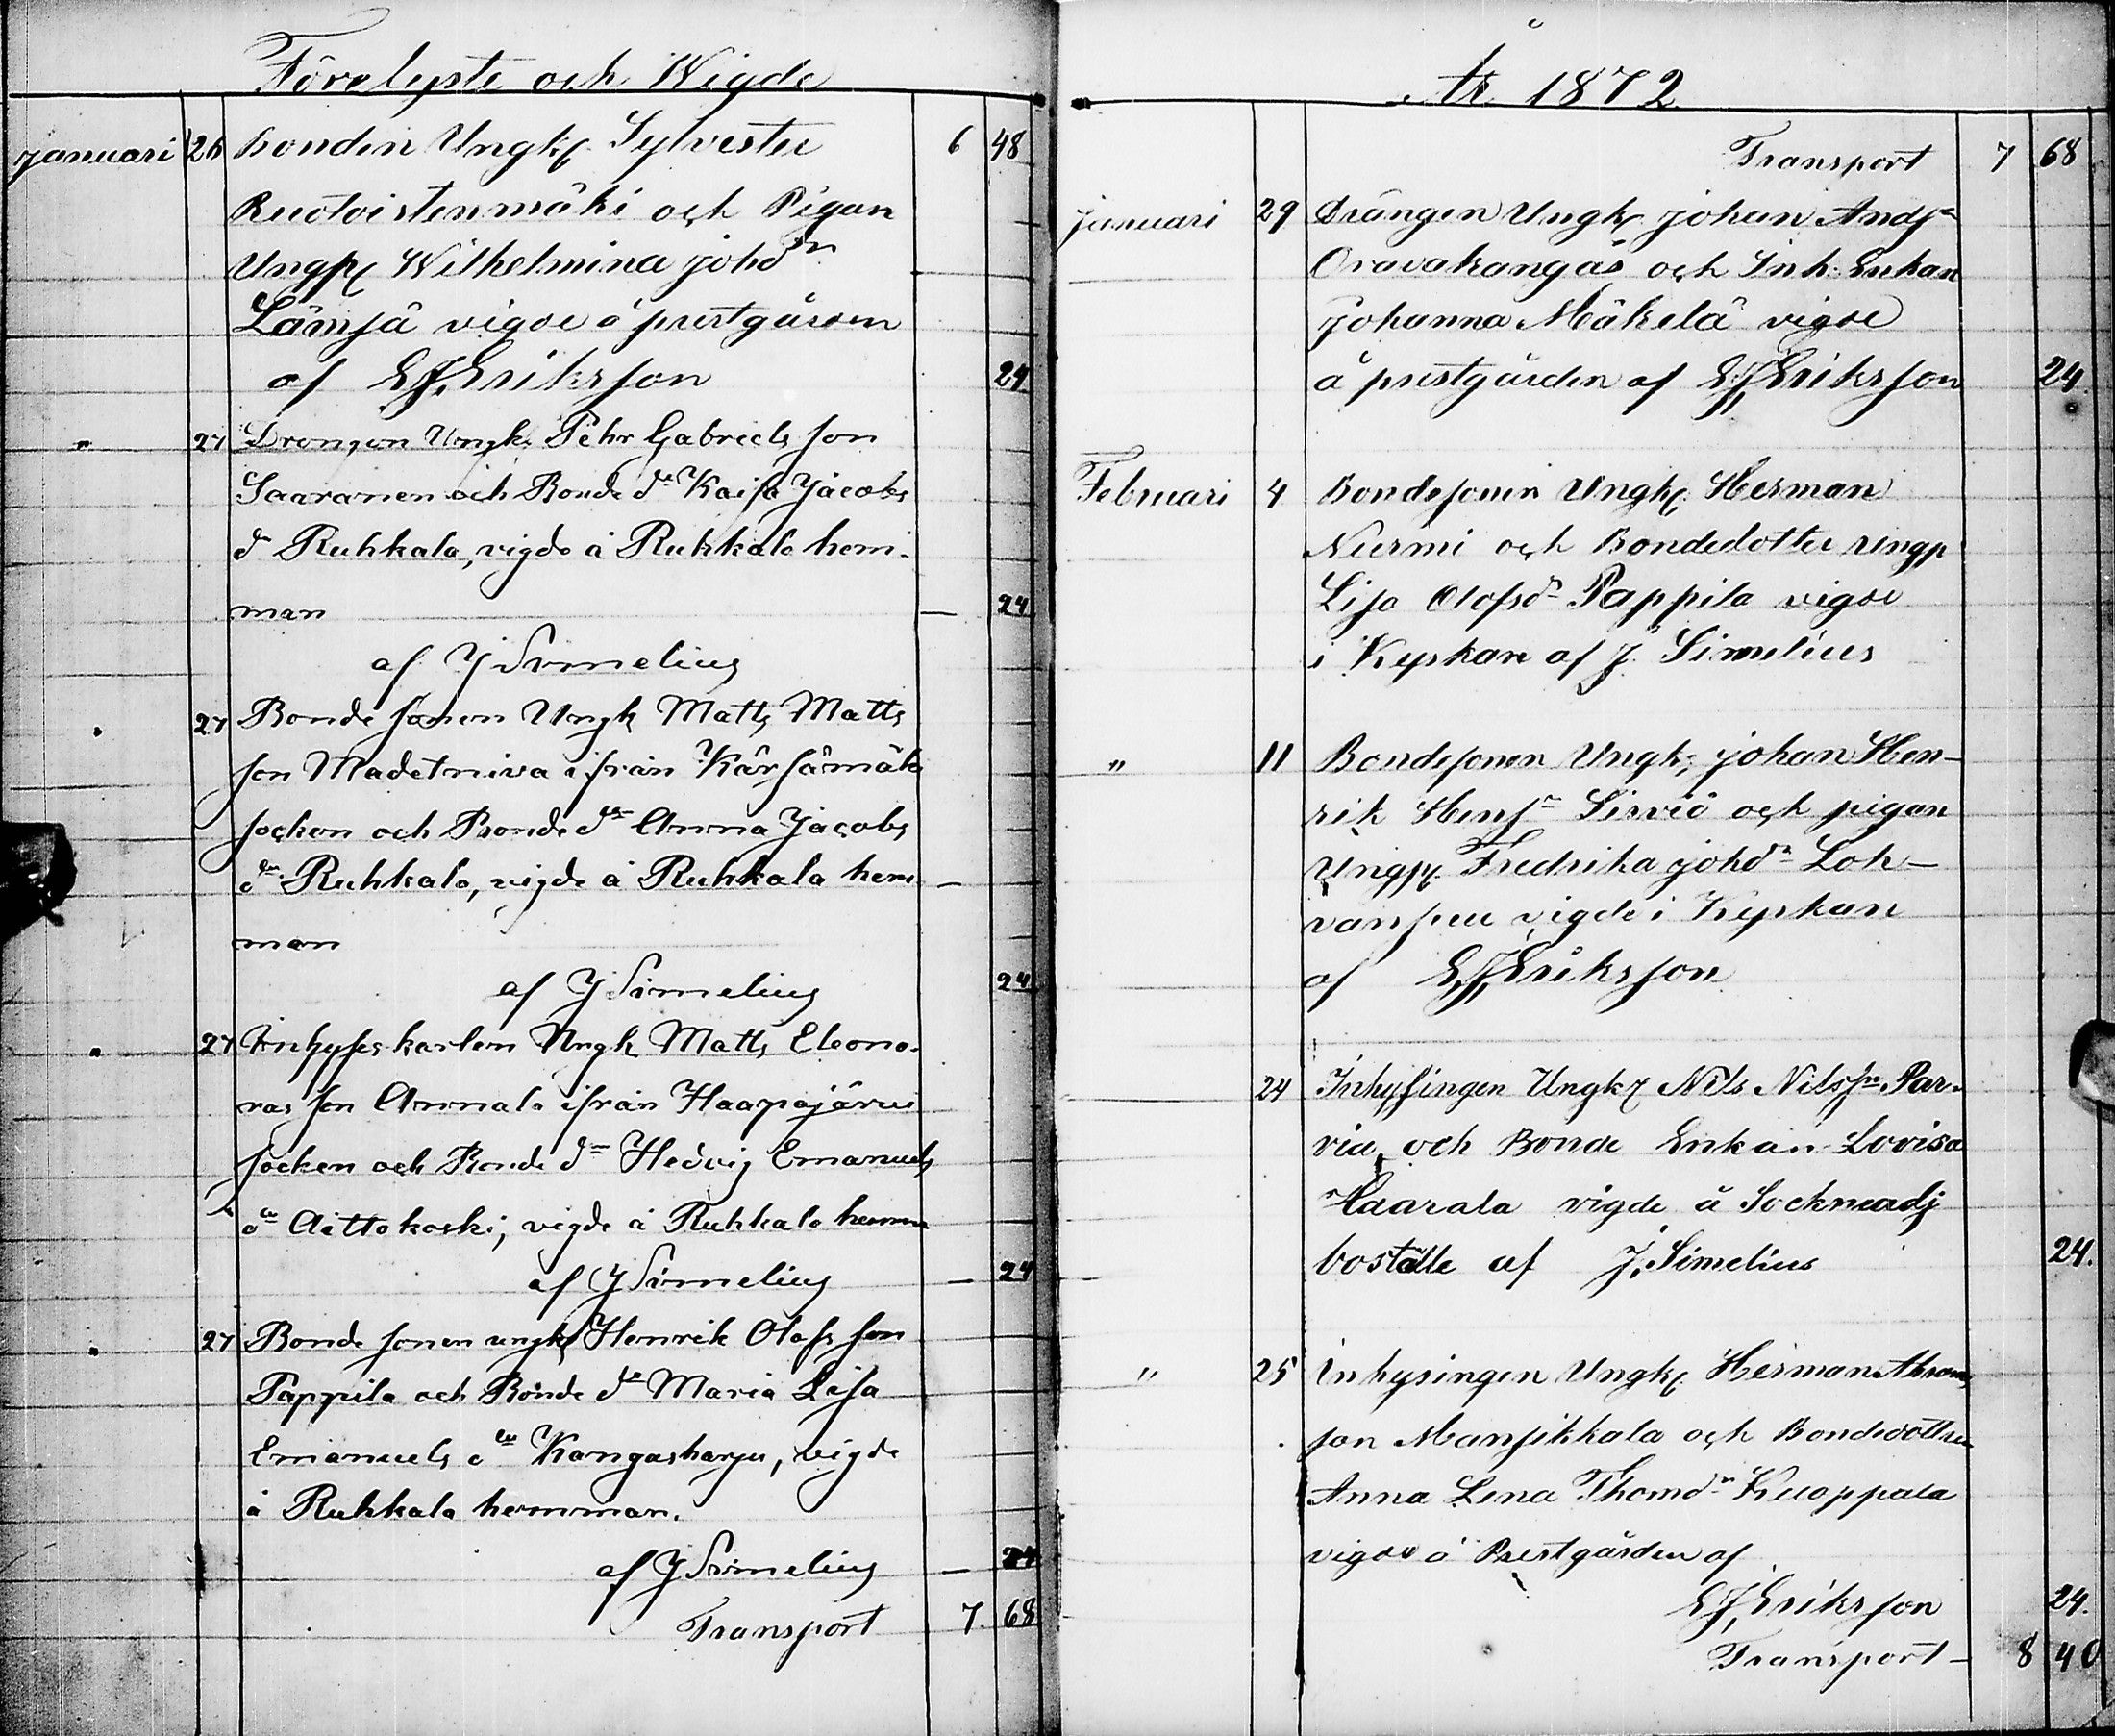 Förelyste och Wigde
Januari 26 Bonden Ungk. Sylvester 6 48
Ruotoistenmäki och Pigan
Ungp. Wilhelmina Johdr
Lämsä vigde å prestgården
af E.J. Eriksson 24
" 27 Drengen Ungk. Pehr Gabriels son
Saaranen och Bonde dr Kaisa Jacobs
dr Ruhkala, vigde å Ruhkala hem-
man — 24
af J Simelius
" 27 Bonde sonen Ungk. Matts Matts
son Madetniva ifrån Kärsämäki
socken och Bonde dr Anna Jacobs
dr Ruhkala, vigde å Ruhkala hem- —
man
af J Simelius 24
" 27 Inhyses karlen Ungk. Matts Eleono-
ras son Annala ifrån Haapajärvi
socken och Bonde dr Hedvig Emanuels
dr Aittokoski, vigde å Ruhkala hemm
af J Simelius — 24
" 27 Bonde sonen ungk. Henrik Olofs son
Pappila och Bonde dr Maria Lisa
Emanuels dr Kangasharju, vigde
å Ruhkala hemman.
af J Simelius — 24
Transport 7. 68
År 1872
Transport 7 68
Januari 29 Drängen Ungk. Johan Andsn
Oravakangas och Inh. Enkan
Johanna Mäkelä vigde
å prestgården af E.J. Eriksson 24.
Februari 4 Bondesonen Ungk. Herman
Nurmi och Bondedotter ungp
Lisa Olofsdr Pappila vigde
i Kyrkan af J. Simelius
" 11 Bondesonen Ungk. Johan Hen-
rik Hensn Sirviö och pigan
Ungp. Fredrika Johdr Loh-
vansuu vigde i Kyrkan
af E.J. Eriksson
24 Inhysingen Ungk. Nils Nilssn Par-
via och Bonde Enkan Lovisa
Haarala vigde å Sockneadj
boställe af J. Simelius 24.
" 25 Inhysingen Ungk. Herman Abrams
son Mansikkala och Bondedottren
Anna Lena Thomdr Kuoppala
vigde å Prestgården af
E.J. Eriksson 24.
Transport — 8 40